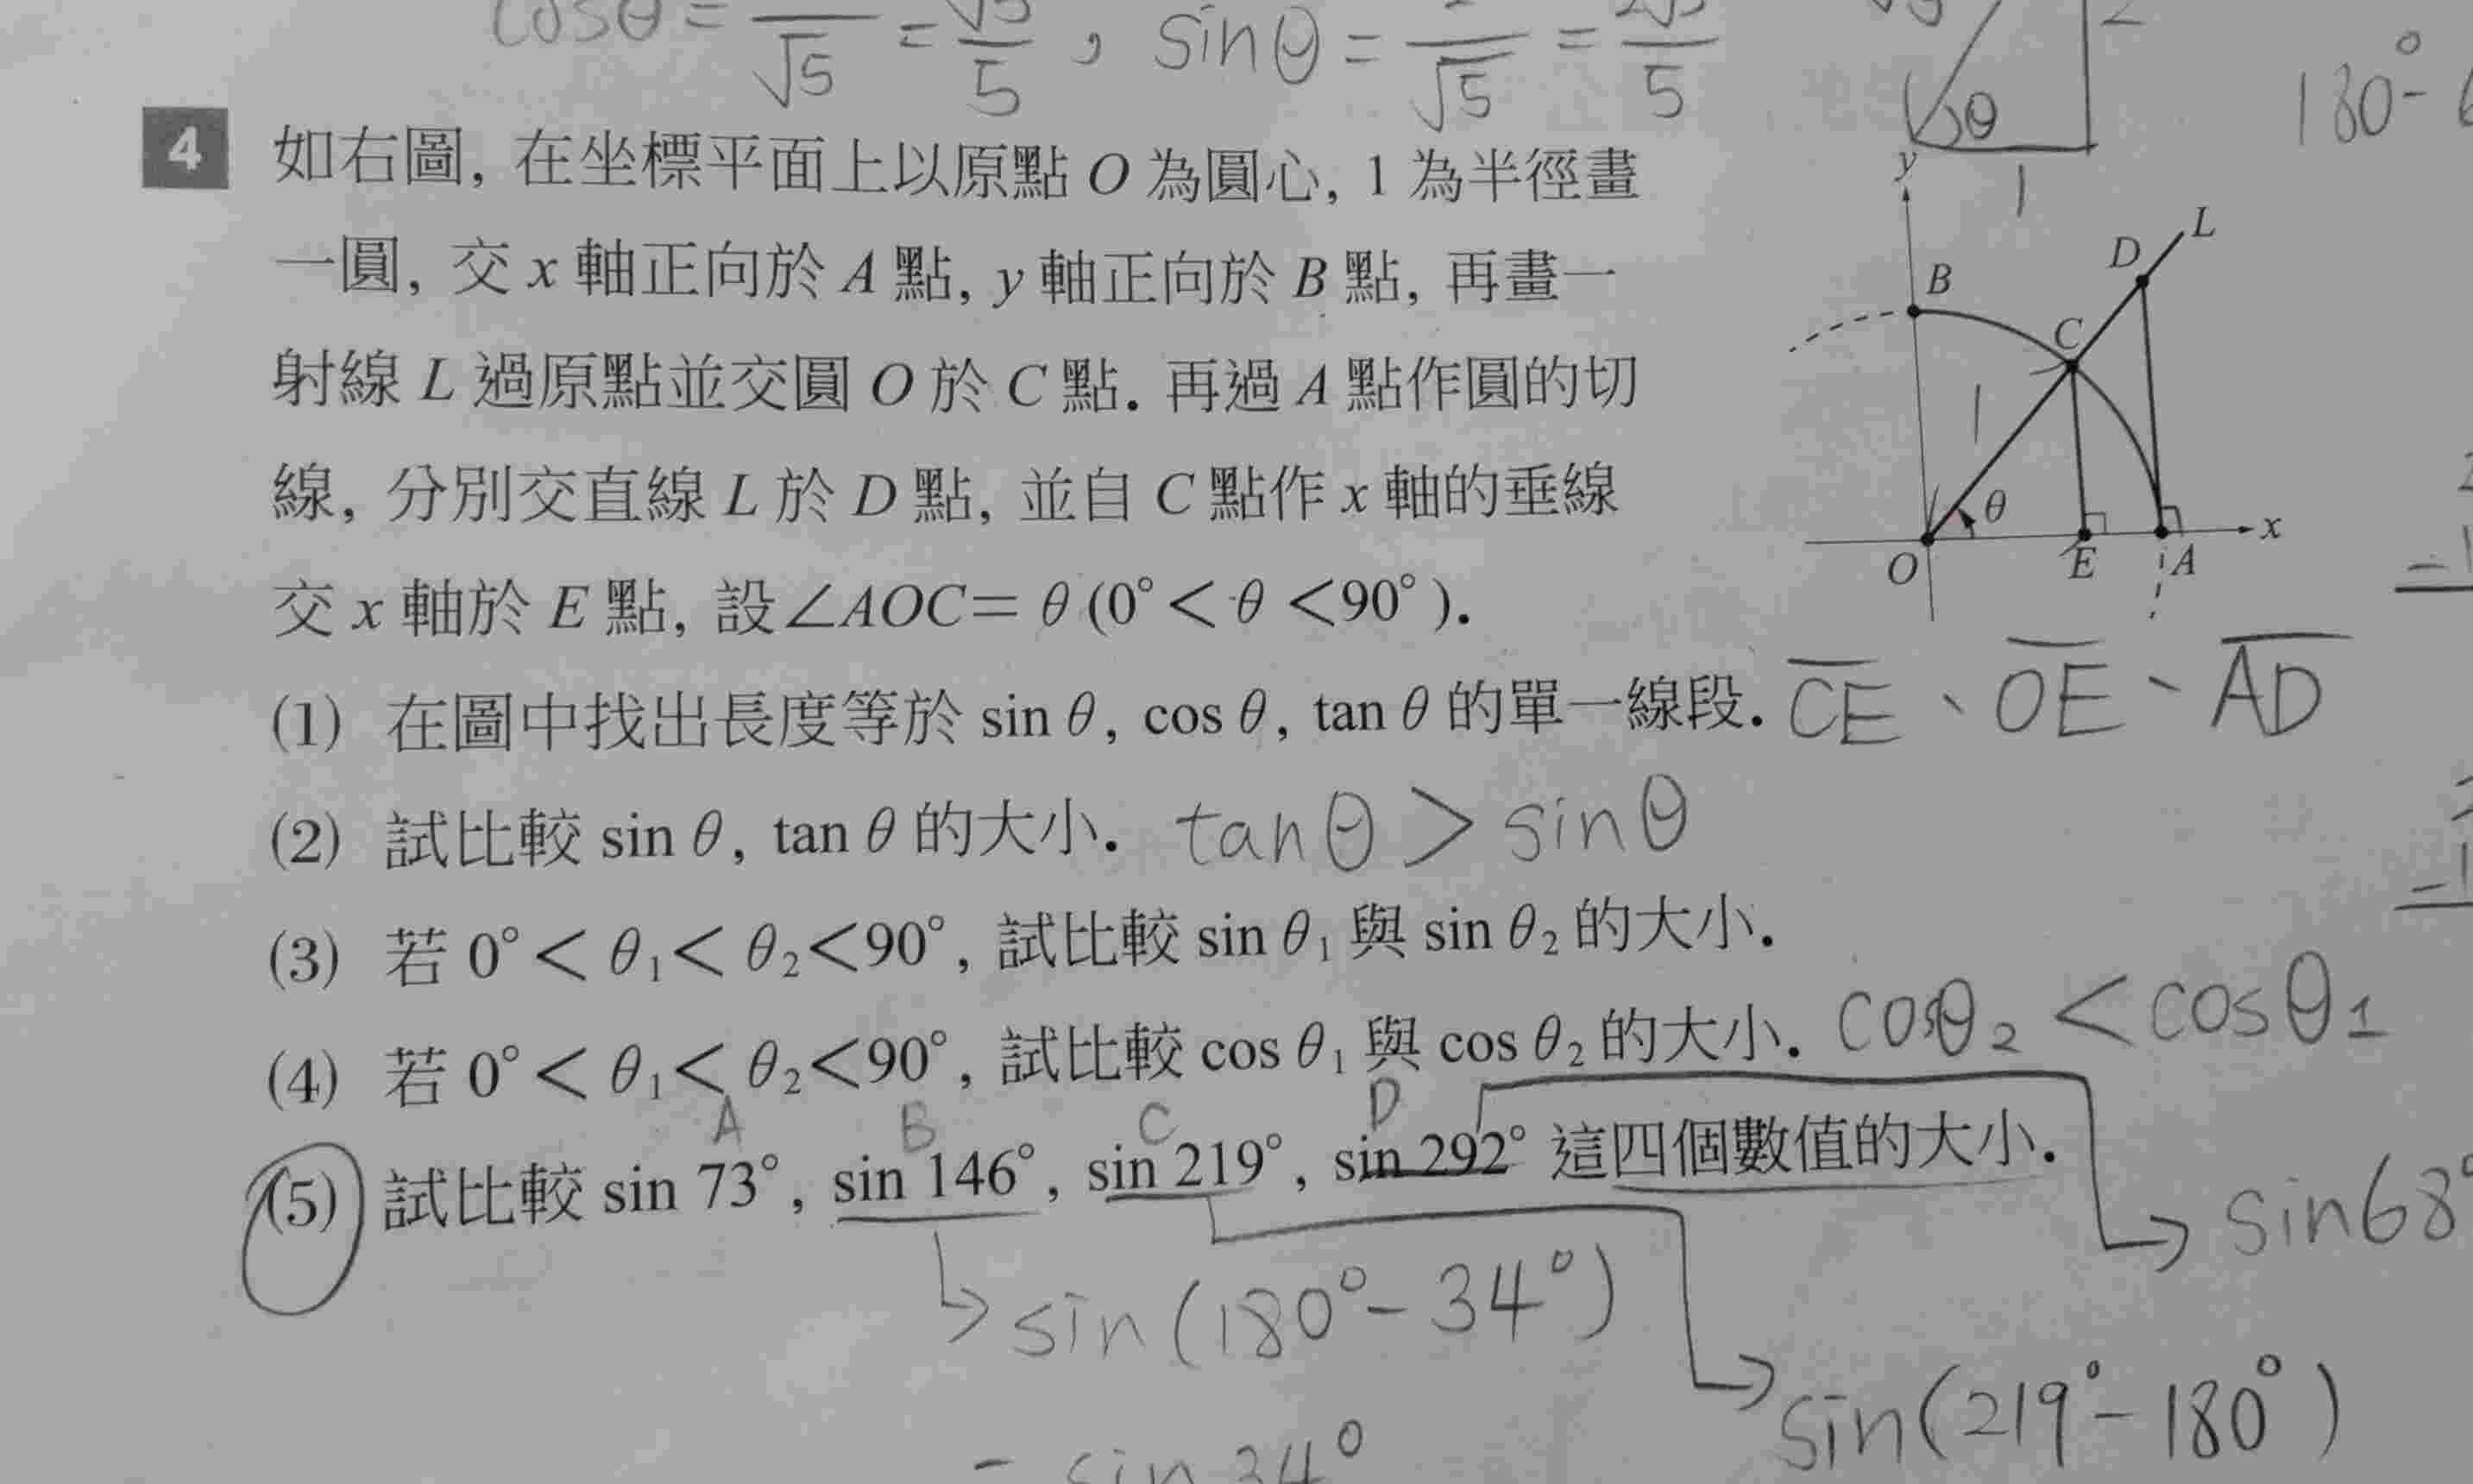 cosθ = /√5 = √5/5 , sinθ = /√5 = 2√5/5
√5 2
θ
1
180°-
4 如右圖, 在坐標平面上以原點 O 為圓心, 1 為半徑畫
一圓, 交 x 軸正向於 A 點, y 軸正向於 B 點, 再畫一
射線 L 過原點並交圓 O 於 C 點. 再過 A 點作圓的切
線, 分別交直線 L 於 D 點, 並自 C 點作 x 軸的垂線
交 x 軸於 E 點, 設∠AOC= θ (0°< θ <90°).
y
L
D
B
C
1
θ
x
O E A
(1) 在圖中找出長度等於 sin θ, cos θ, tan θ 的單一線段. C̅E̅、O̅E̅、A̅D̅
(2) 試比較 sin θ, tan θ 的大小. tanθ > sinθ
(3) 若 0°< θ₁< θ₂<90°, 試比較 sin θ₁ 與 sin θ₂ 的大小.
(4) 若 0°< θ₁< θ₂<90°, 試比較 cos θ₁ 與 cos θ₂ 的大小. cosθ₂ < cosθ₁
A B C D
(5) 試比較 sin 73°, sin 146°, sin 219°, sin 292° 這四個數值的大小.
sin68°
sin(180°-34°)
sin(219°-180°)
- sin 34°